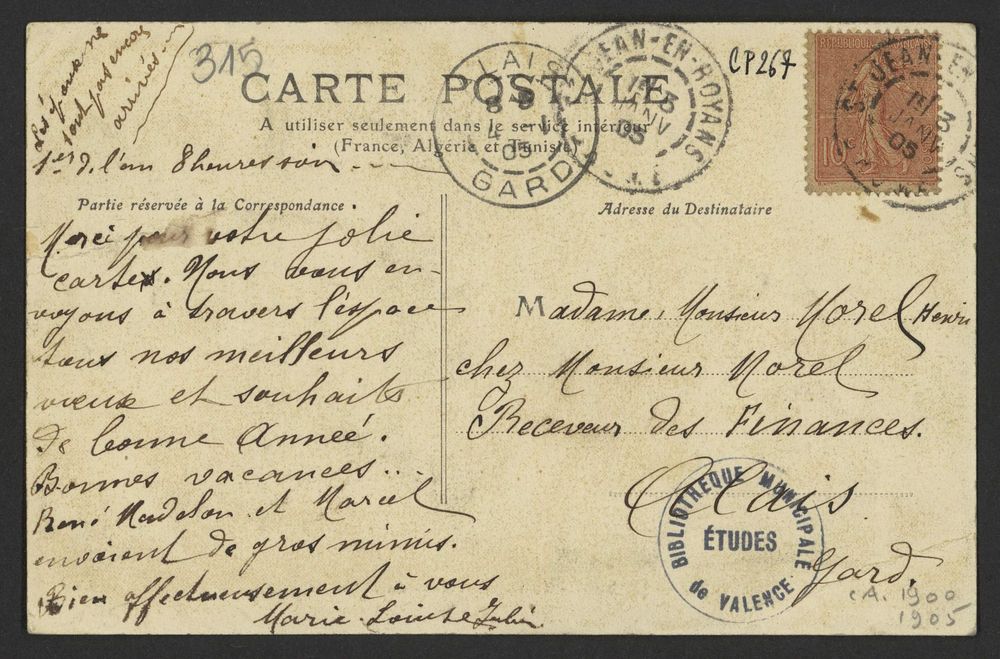 315
CP267
Les époux ne
sont pas encore
arrivés
CARTE POSTALE
A utiliser seulement dans le service intérieur
(France, Algérie et Tunisie)
1er d. l'an 8 heures soir
ALAIS
8
4 -1
05
GARD
ST JEAN-EN-ROYANS
3
JANV
05
RÉPUBLIQUE FRANÇAISE
10
ST JEAN-EN-ROYANS
3
JANV
05
Partie réservée à la Correspondance
Adresse du Destinataire
Merci pour votre jolie
cartes. Nous vous en-
voyons à travers l'espace
tous nos meilleurs
vœux et souhaits
de bonne Anneé.
Bonnes vacances...
René Madelon et Marcel
envoient de gros mimis.
Bien affectueusement à vous
Marie Louise Julien
Madame, Monsieur Morel Henri
chez Monsieur Morel
Receveur des Finances.
Alais
Gard.
BIBLIOTHEQUE MUNICIPALE
ÉTUDES
de VALENCE
CA. 1900
1905